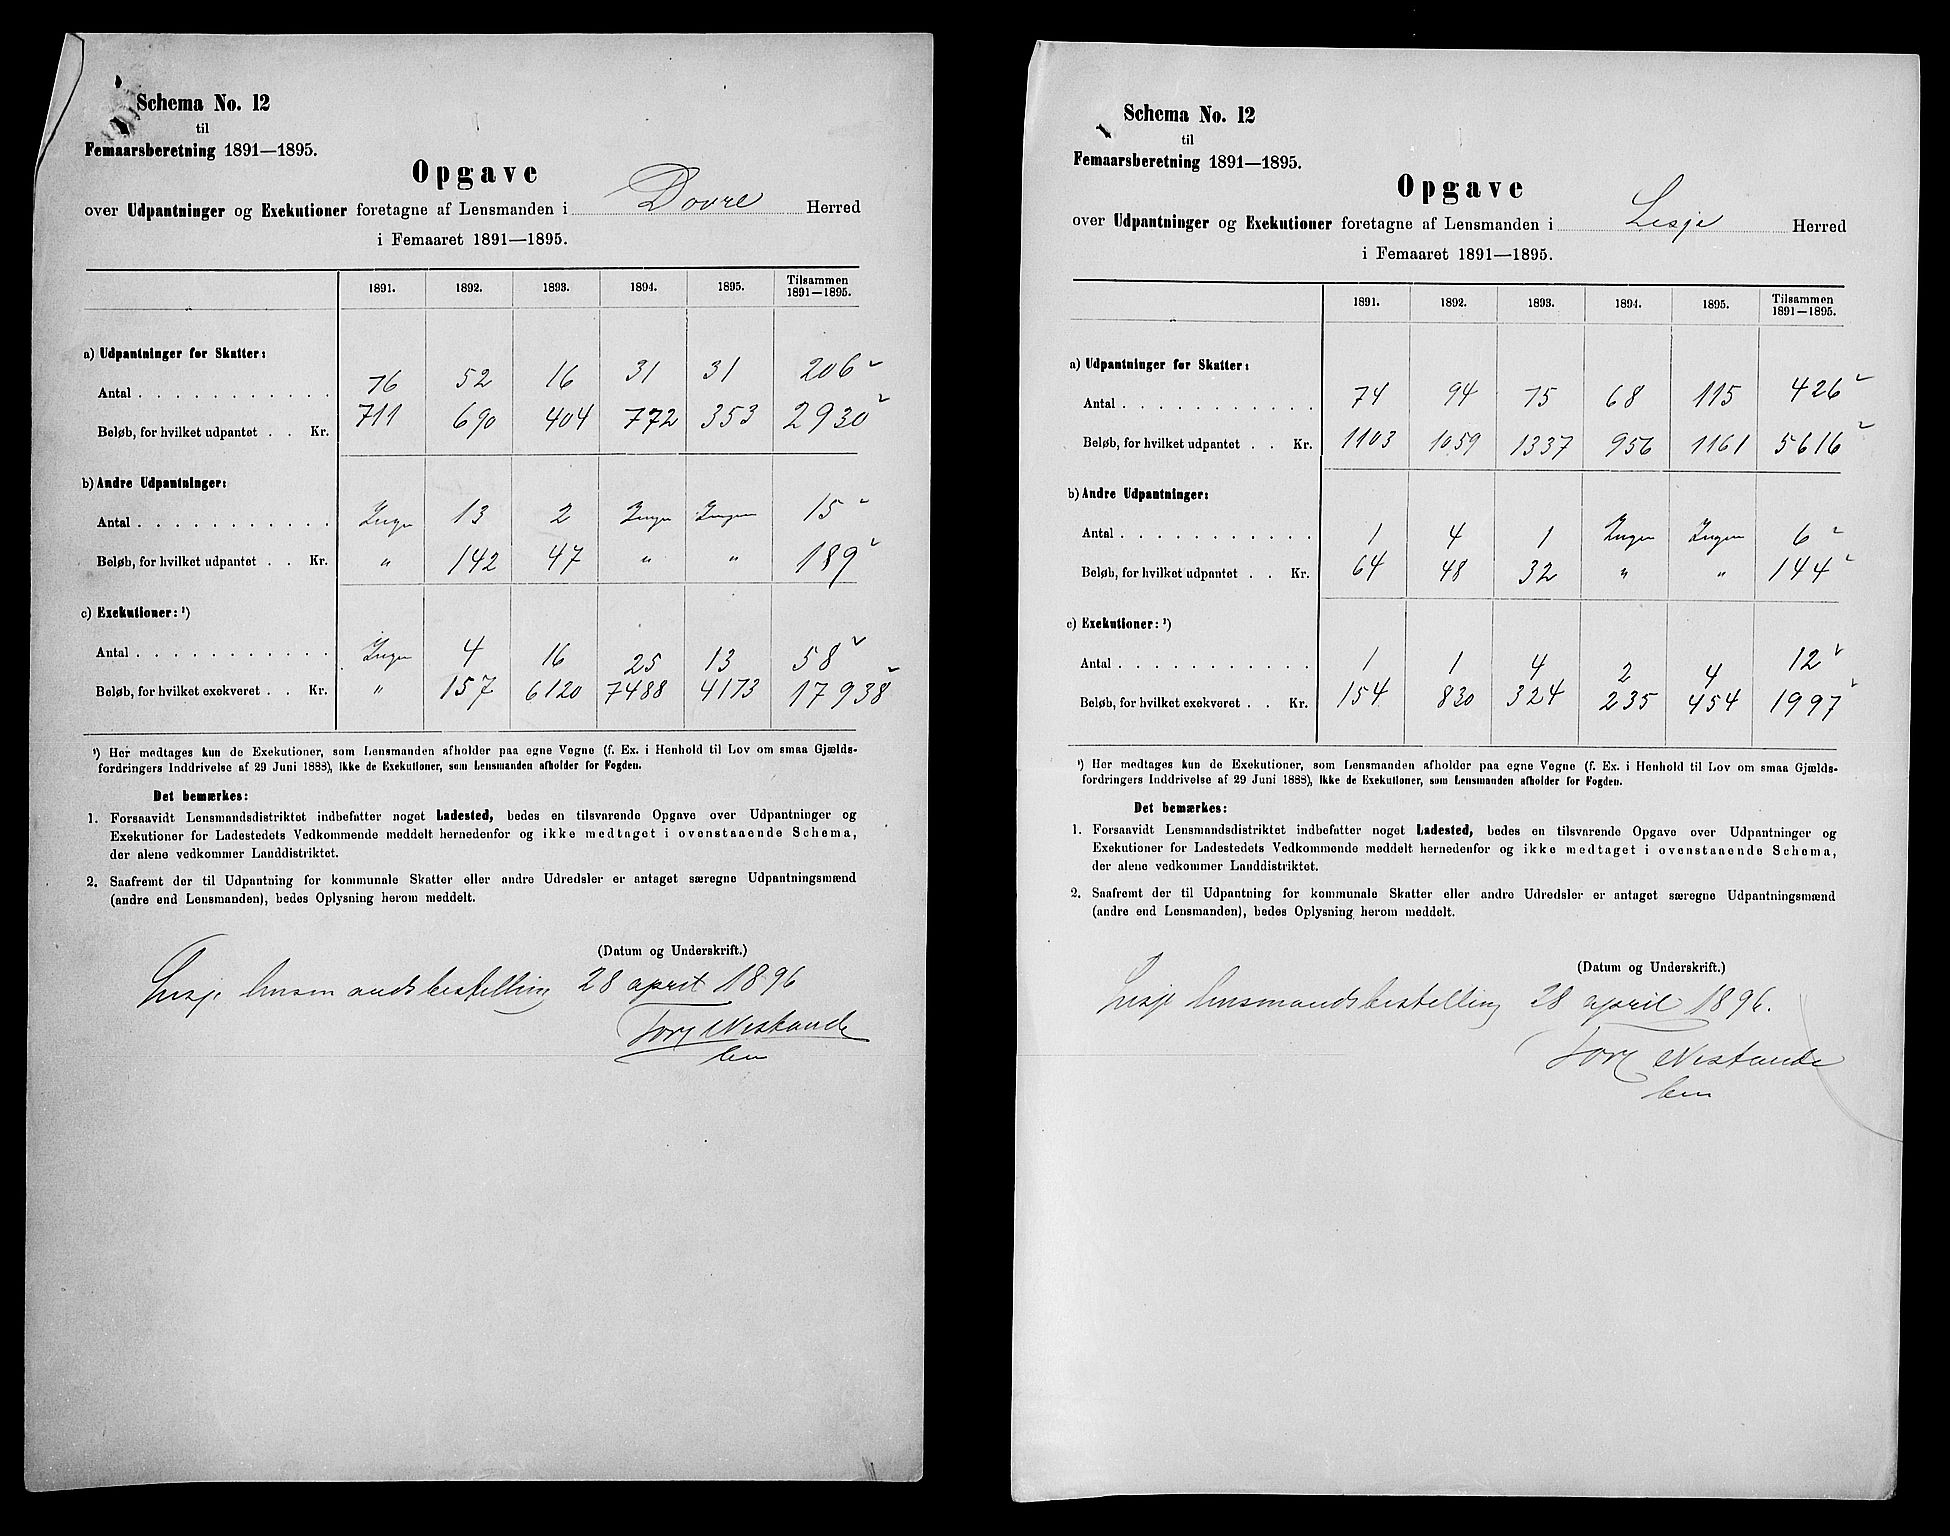 Schema No. 12
til
Femaarsberetning 1891—1895.
Opgave
over Udpantninger og Exekutioner foretagne af Lensmanden i Dovre Herred
i Femaaret 1891—1895.
1891. 1892. 1893. 1894. 1895. Tilsammen 1891—1895.
a) Udpantninger for Skatter:
Antal . . . . . . . . . . . 76 52 16 31 31 206
Beløb, for hvilket udpantet . . Kr. 711 690 404 772 353 2930
b) Andre Udpantninger:
Antal . . . . . . . . . . . Ingen 13 2 Ingen Ingen 15
Beløb, for hvilket udpantet . . Kr. " 142 47 " " 189
c) Exekutioner: ¹)
Antal . . . . . . . . . . . Ingen 4 16 25 13 58
Beløb, for hvilket exekveret . . Kr. " 157 6120 7488 4173 17938
¹) Her medtages kun de Exekutioner, som Lensmanden afholder paa egne Vegne (f. Ex. i Henhold til Lov om smaa Gjælds-
fordringers Inddrivelse af 29 Juni 1888), ikke de Exekutioner, som Lensmanden afholder for Fogden.
Det bemærkes:
1. Forsaavidt Lensmandsdistriktet indbefatter noget Ladested, bedes en tilsvarende Opgave over Udpantninger og
Exekutioner for Ladestedets Vedkommende meddelt hernedenfor og ikke medtaget i ovenstaaende Schema,
der alene vedkommer Landdistriktet.
2. Saafremt der til Udpantning for kommunale Skatter eller andre Udredsler er antaget særegne Udpantningsmænd
(andre end Lensmanden), bedes Oplysning herom meddelt.
(Datum og Underskrift.)
Lesje lensmandsbestilling 28 april 1896
Torz Nestande

Schema No. 12
til
Femaarsberetning 1891—1895.
Opgave
over Udpantninger og Exekutioner foretagne af Lensmanden i Lesje Herred
i Femaaret 1891—1895.
1891. 1892. 1893. 1894. 1895. Tilsammen 1891—1895.
a) Udpantninger for Skatter:
Antal . . . . . . . . . . . 74 94 75 68 115 426
Beløb, for hvilket udpantet . . Kr. 1103 1059 1337 956 1161 5616
b) Andre Udpantninger:
Antal . . . . . . . . . . . 1 4 1 Ingen Ingen 6
Beløb, for hvilket udpantet . . Kr. 64 48 32 " " 144
c) Exekutioner: ¹)
Antal . . . . . . . . . . . 1 1 4 2 4 12
Beløb, for hvilket exekveret . . Kr. 154 830 324 235 454 1997
¹) Her medtages kun de Exekutioner, som Lensmanden afholder paa egne Vegne (f. Ex. i Henhold til Lov om smaa Gjælds-
fordringers Inddrivelse af 29 Juni 1888), ikke de Exekutioner, som Lensmanden afholder for Fogden.
Det bemærkes:
1. Forsaavidt Lensmandsdistriktet indbefatter noget Ladested, bedes en tilsvarende Opgave over Udpantninger og
Exekutioner for Ladestedets Vedkommende meddelt hernedenfor og ikke medtaget i ovenstaaende Schema,
der alene vedkommer Landdistriktet.
2. Saafremt der til Udpantning for kommunale Skatter eller andre Udredsler er antaget særegne Udpantningsmænd
(andre end Lensmanden), bedes Oplysning herom meddelt.
(Datum og Underskrift.)
Lesje lensmandsbestilling 28 april 1896.
Torz Nestande